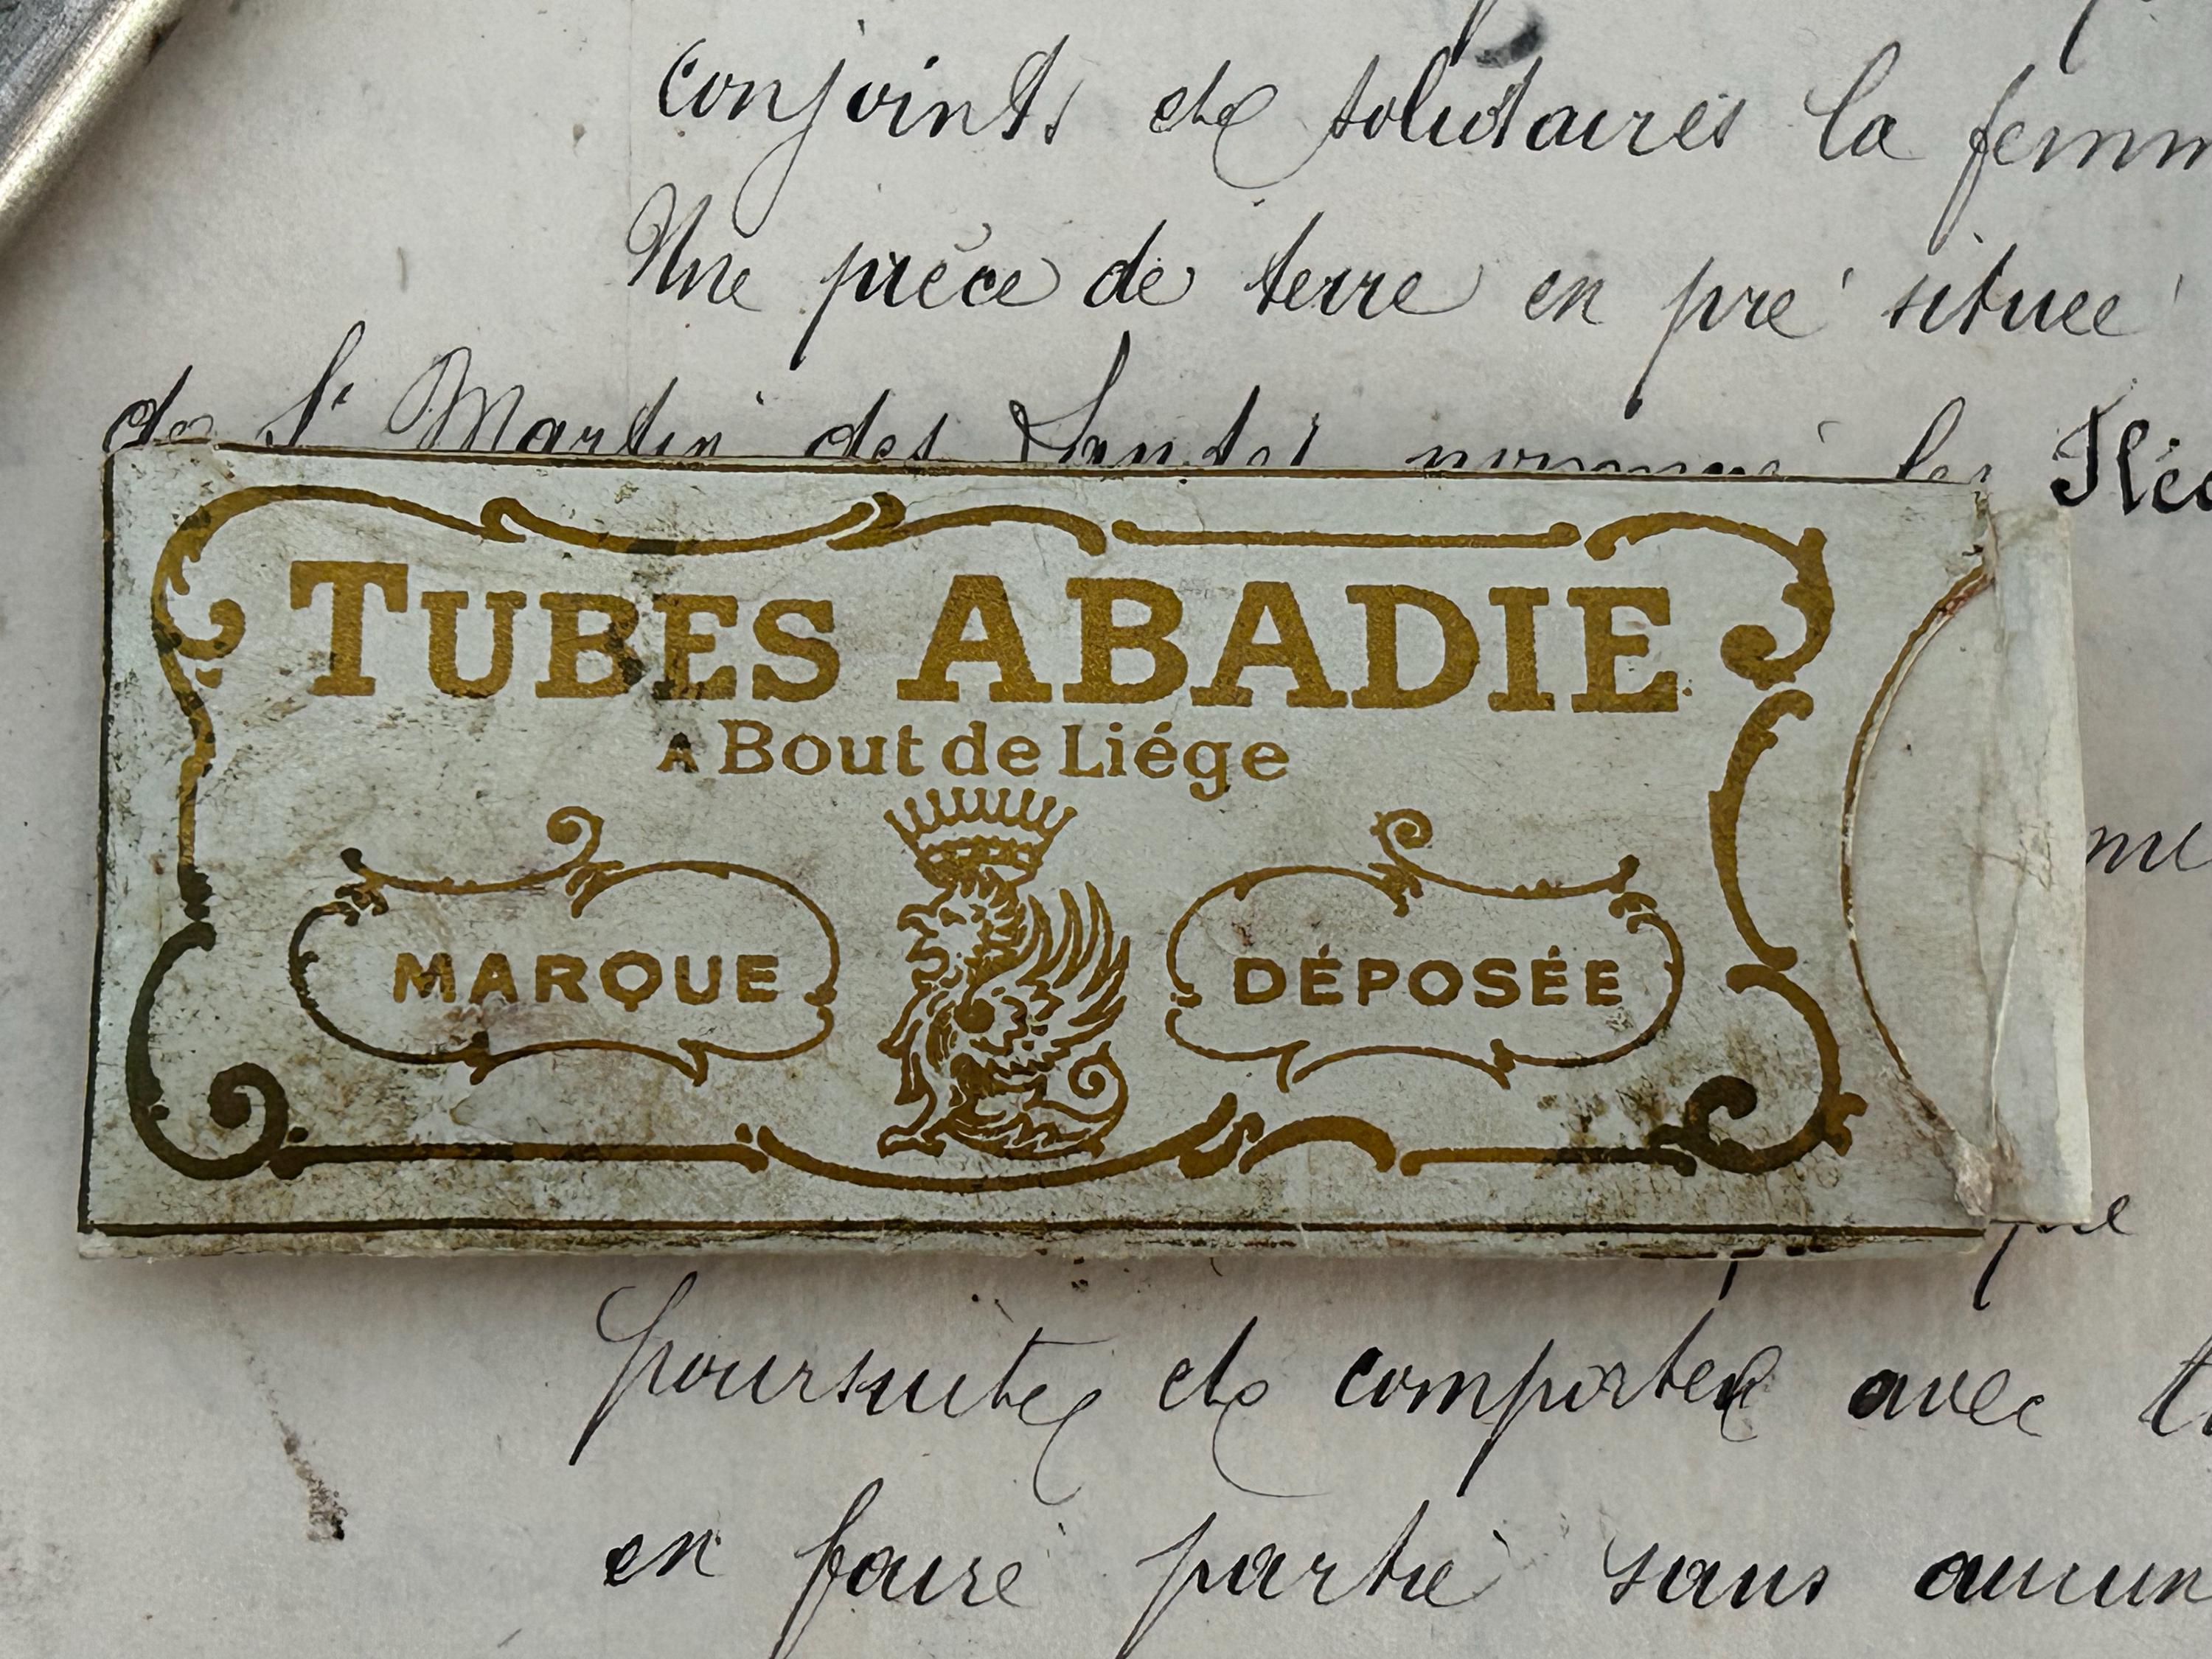 conjoints et solidaires la femm
Une pièce de terre en pré située
de St Martin des Landes nommé les
TUBES ABADIE
A Bout de Liége
MARQUE DÉPOSÉE
poursuites et comporter avec
en faire partie sans aucun